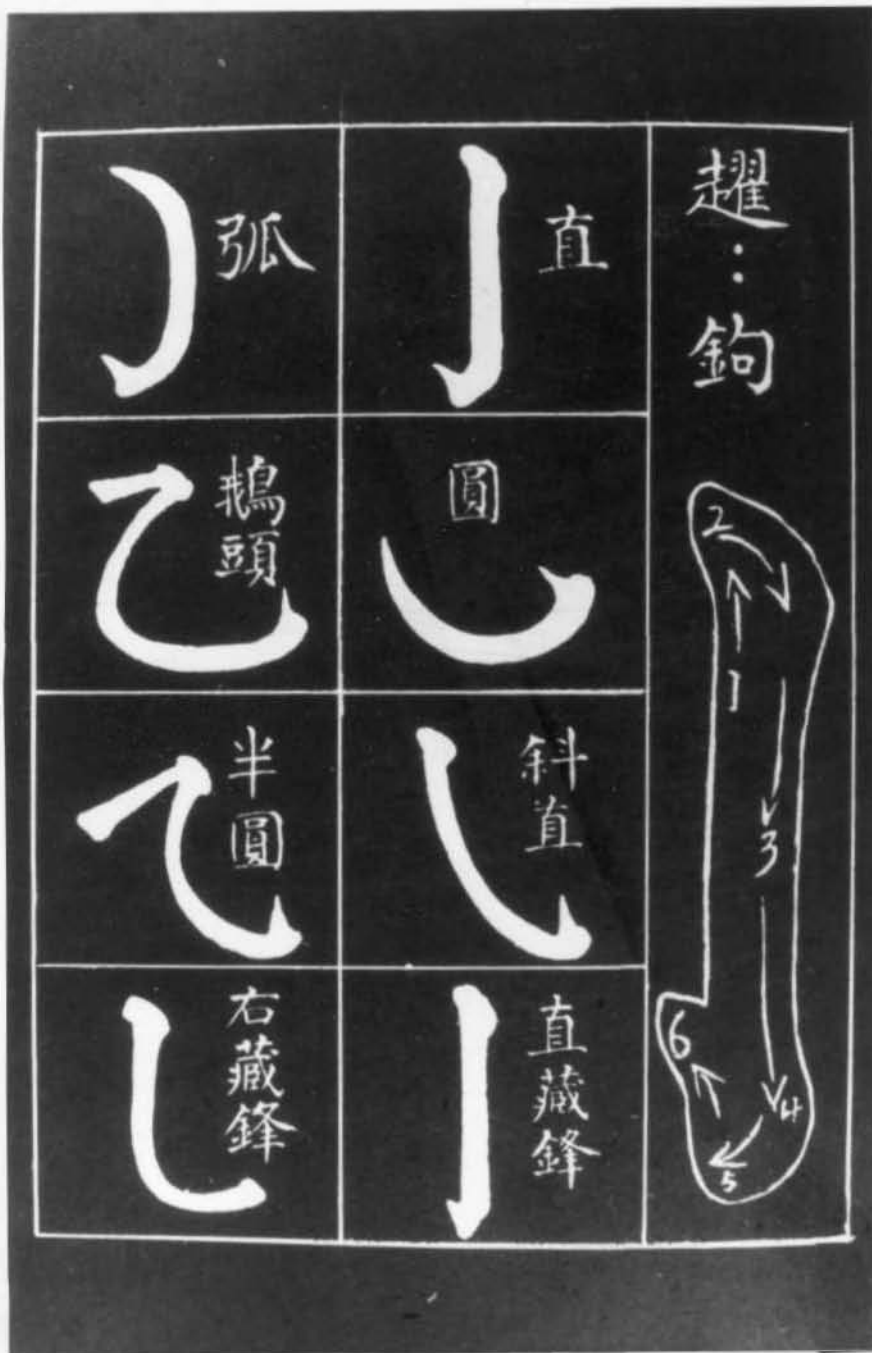 趯:鉤
1
2
3
4
5
6
直
圓
斜直
直藏鋒
弧
鵝頭
半圓
右藏鋒